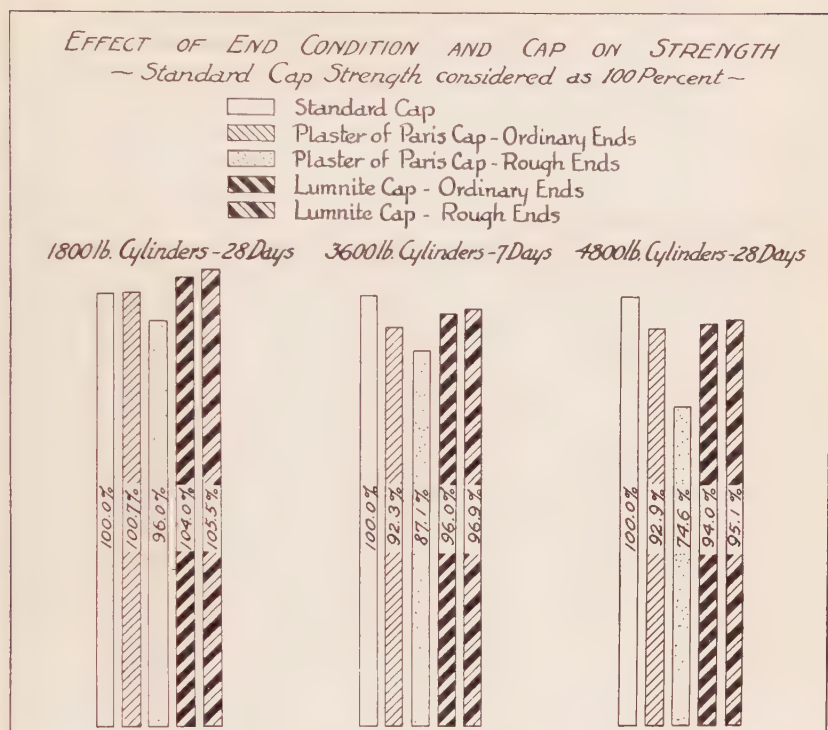 EFFECT OF END CONDITION AND CAP ON STRENGTH
~ Standard Cap Strength considered as 100 Percent ~
Standard Cap
Plaster of Paris Cap - Ordinary Ends
Plaster of Paris Cap - Rough Ends
Lumnite Cap - Ordinary Ends
Lumnite Cap - Rough Ends
1800 lb. Cylinders - 28 Days
100.0%
100.7%
96.0%
104.0%
105.5%
3600 lb. Cylinders - 7 Days
100.0%
92.3%
87.1%
96.0%
96.9%
4800 lb. Cylinders - 28 Days
100.0%
92.9%
74.6%
94.0%
95.1%